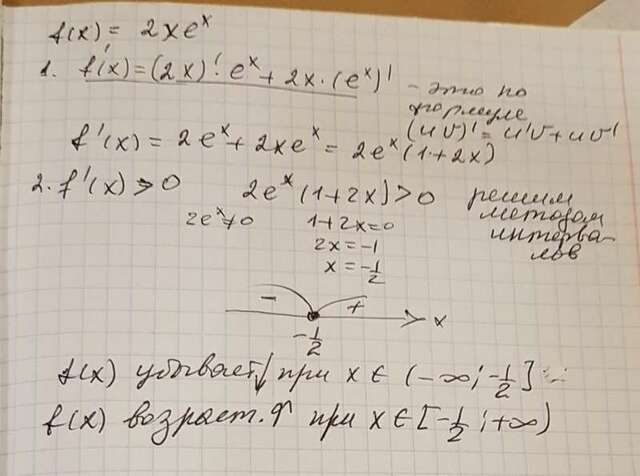 f(x) = 2xeˣ
1. f'(x) = (2x)'·eˣ + 2x·(eˣ)' - это по формуле
(uv)' = u'v + uv'
f'(x) = 2eˣ + 2xeˣ = 2eˣ(1+2x)
2. f'(x) > 0 2eˣ(1+2x) > 0 решим методом интервалов
2eˣ ≠ 0 1+2x=0
2x = -1
x = -1/2
- + x
-1/2
f(x) убывает ↓ при x ∈ (-∞; -1/2]
f(x) возраст. ↑ при x ∈ [-1/2; +∞)